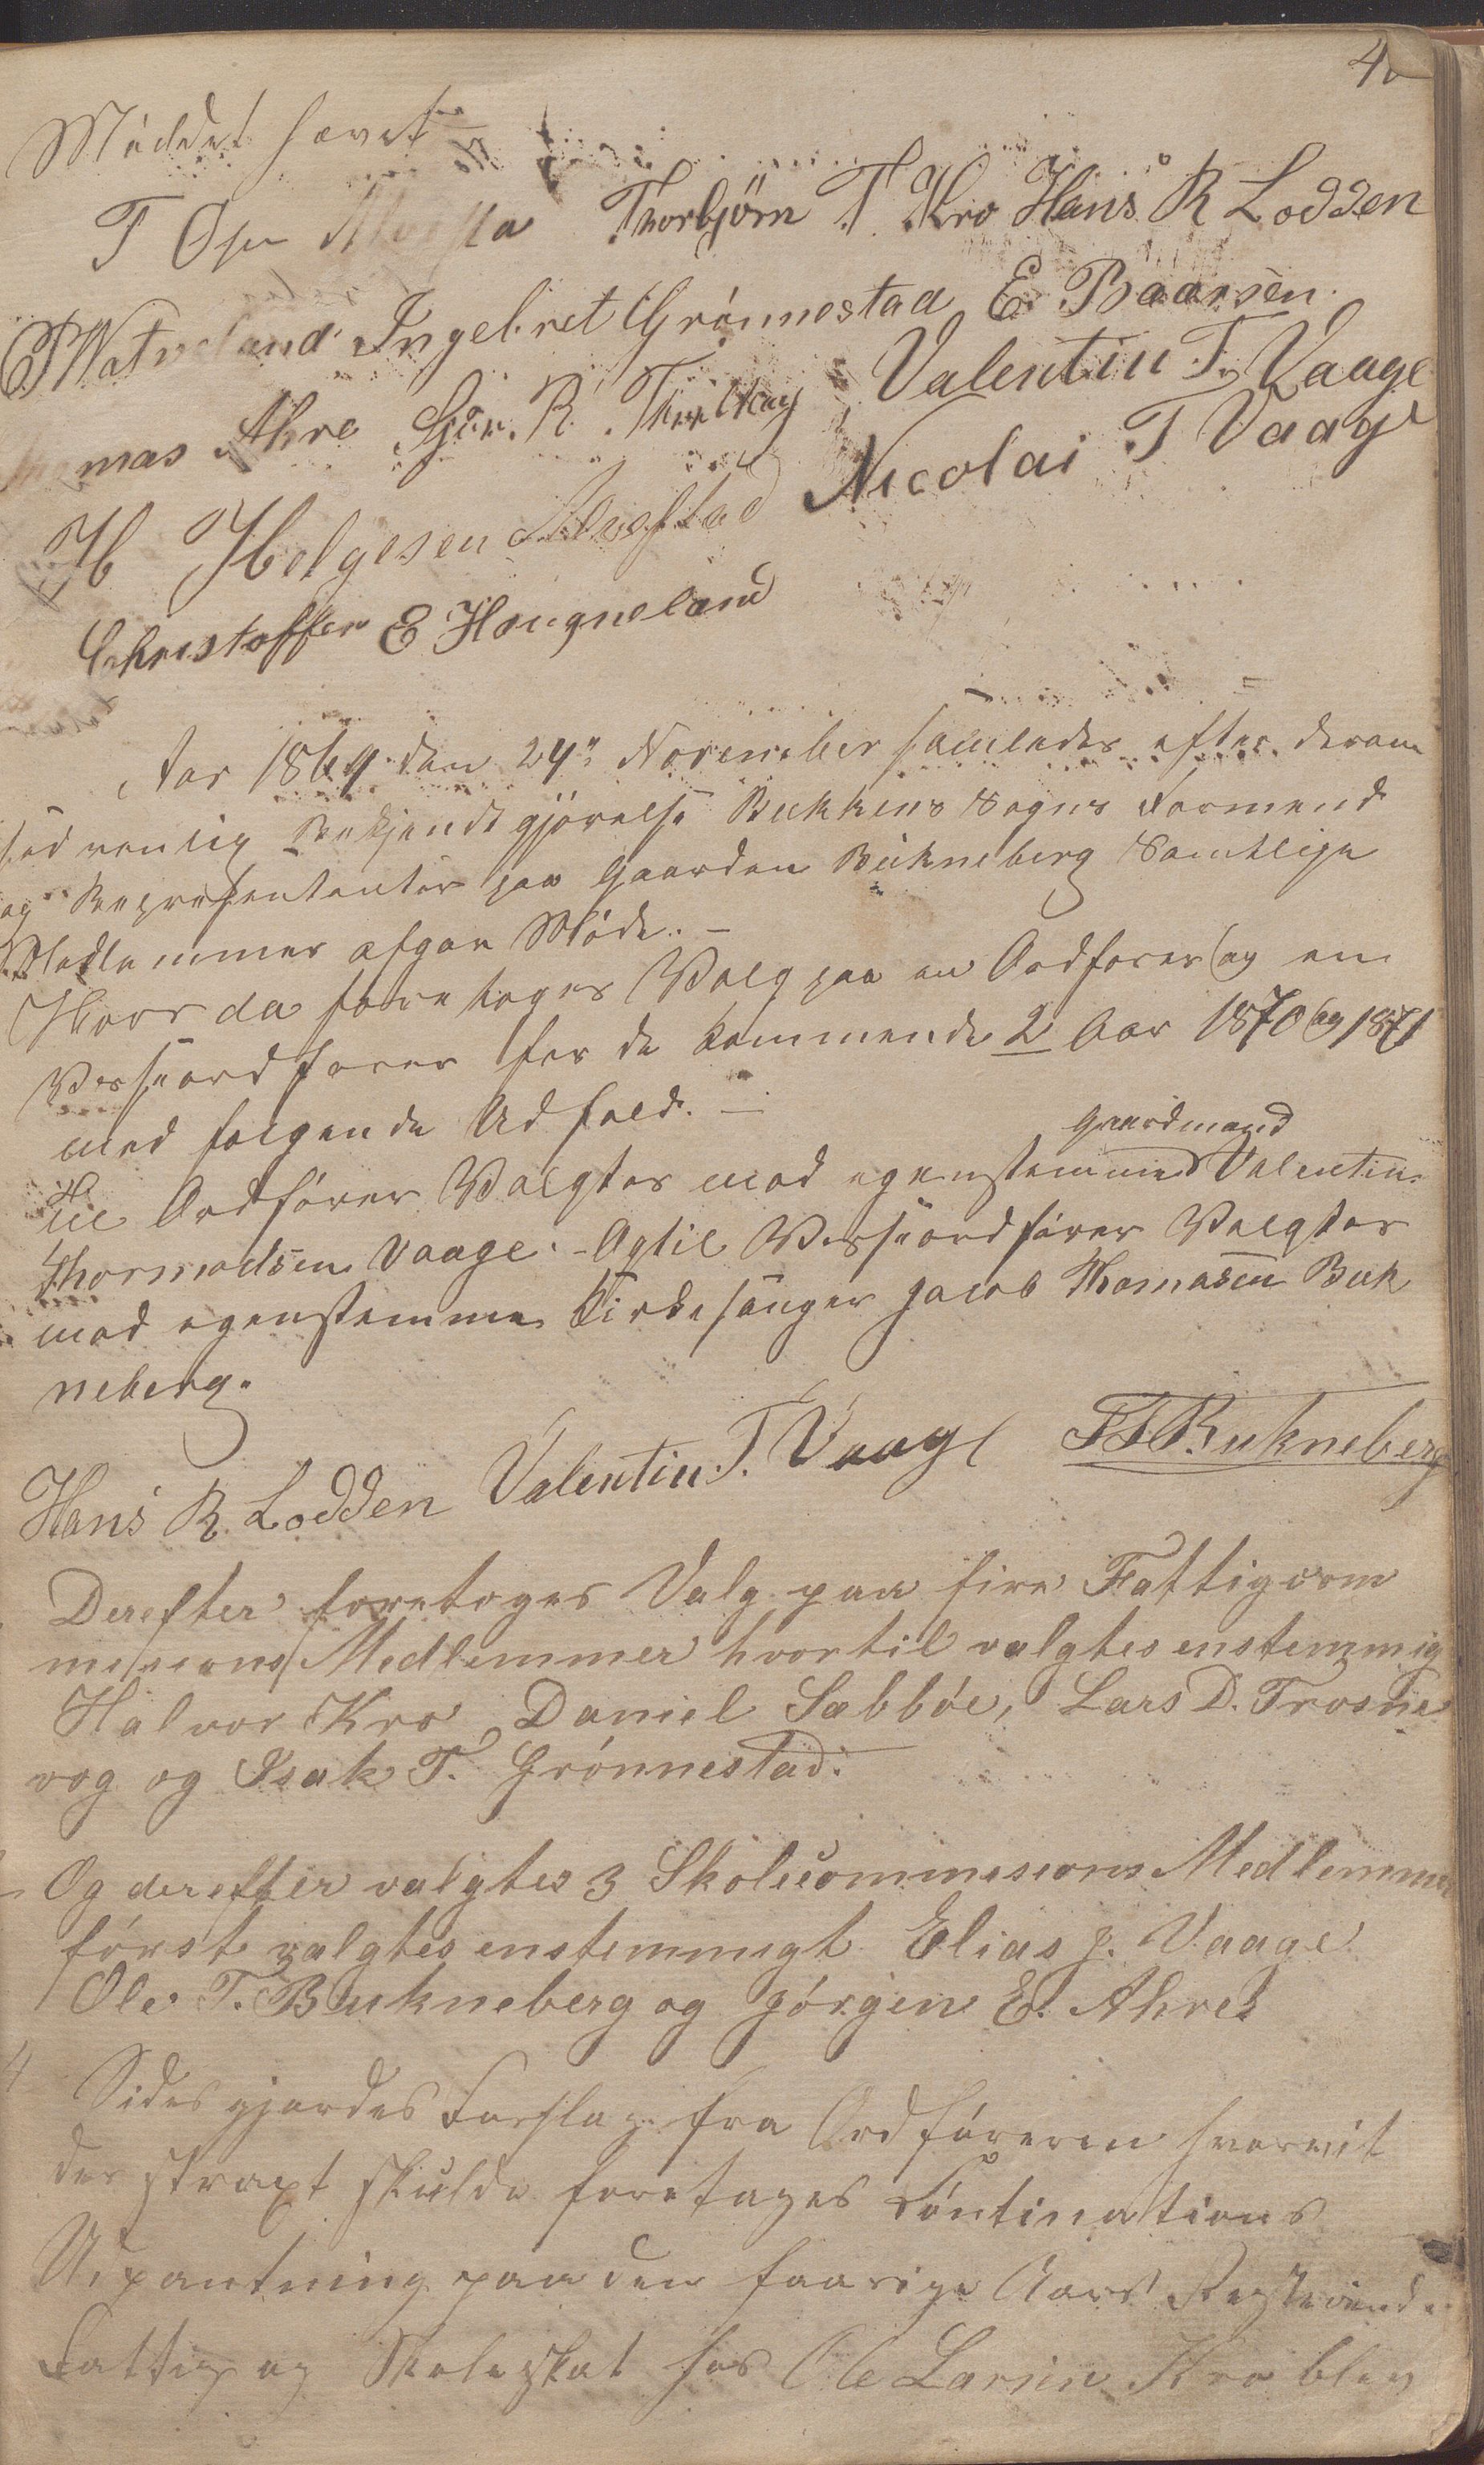 40
Mödet hævet
T Thorbjörn T Kro Hans R Lodden
Ingebret Grönnestad E. Baarsen
mas Ahre R. Valentin T. Vaage
H Helgesen Nicolai T Vaage
Christoffer E Hougneland
Aar 1869 den 24de November samledes efter derom
sædvenlig Bekjendtgjörelse Bukkens Sogns Formend
og Representanter paa Gaarden Bukneberg Samtlige
Medlemmer afgav Möde. -
Hvor da foretoges Valg paa en Ordforer og en
Visseordforer for de kommende 2 Aar 1870 og 1871
med folgende Udfald. -
Gaardmand
Til Ordförer Valgtes med egenstemme Valentin
Thormodsen Vaage. - Og til Visseordförer Valgtes
med egenstemme Kirkesanger Jacob Thomasen Buk
neberg.
Hans R. Lodden Valentin T. Vaage Bukneberg
Derefter foretoges Valg paa fire Fattigcom
missions Medlemmer hvortil valgtes enstemmig
Halvor Kro, Daniel Sæbböe, Lars D. Trosne
vog og Isak T. Grönnestad.
Og derefter valgtes 3 Skolecommissions Medlemmer
först valgtes enstemmigt Elias J. Vaage
Ole T. Bukneberg og Jörgen E. Ahre
4 Sides gjordes Forslag fra Ordföreren hvorvit
der straxt skulde foretages
Udpantning paa den forrige Aars
Fattig og Skoleskat hos Ole Larsen Kro blev